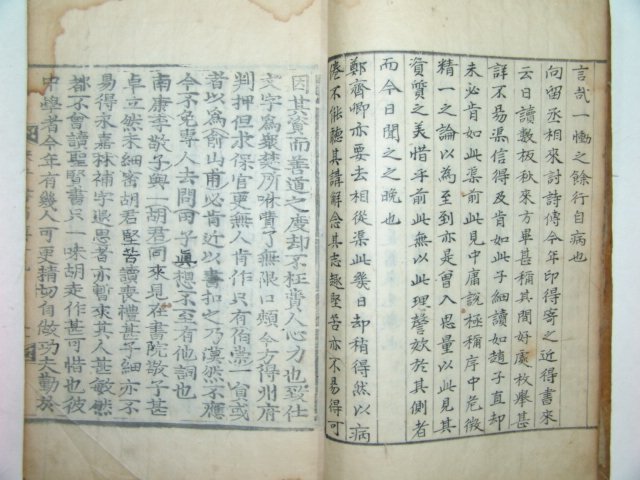 言哉一慟之餘行自病也
向留丞相來討詩傳今年印得寄之近得書來
云日讀數板秋來方畢甚稱其間好處枚擧甚
詳不易渠信得及肯如此子細讀如趙子直却
未必肯如此渠前此見中庸說極稱序中危微
精一之論以爲至到亦是曾入思量以此見其
資質之美惜乎前此無以此理謦欬於其側者
而今日聞之之晚也
鄭齊卿亦要去相從渠此幾日却稍得然以病
倦不能聽其講解念其志趣堅苦亦不易得可
因其資而善道之度却不枉費人心力也發仕
文字爲衆楚所咻費了無限口頰今方得州府
判押但求保官更無人肯作只有伯崇一員或
者以爲俞山甫必肯近以書扣之乃漠然不應
今不免專人去問兩子眞想不至有他詞也
南康李敬子與一胡君同來見在書院敬子甚
卓立然未細密胡君堅苦讀喪禮甚子細亦不
易得永嘉林補字退思者亦暫來其人甚敏然
都不會讀聖賢書只一味胡走作甚可惜也彼
中學者今年有幾人可更精切自做功夫勤於